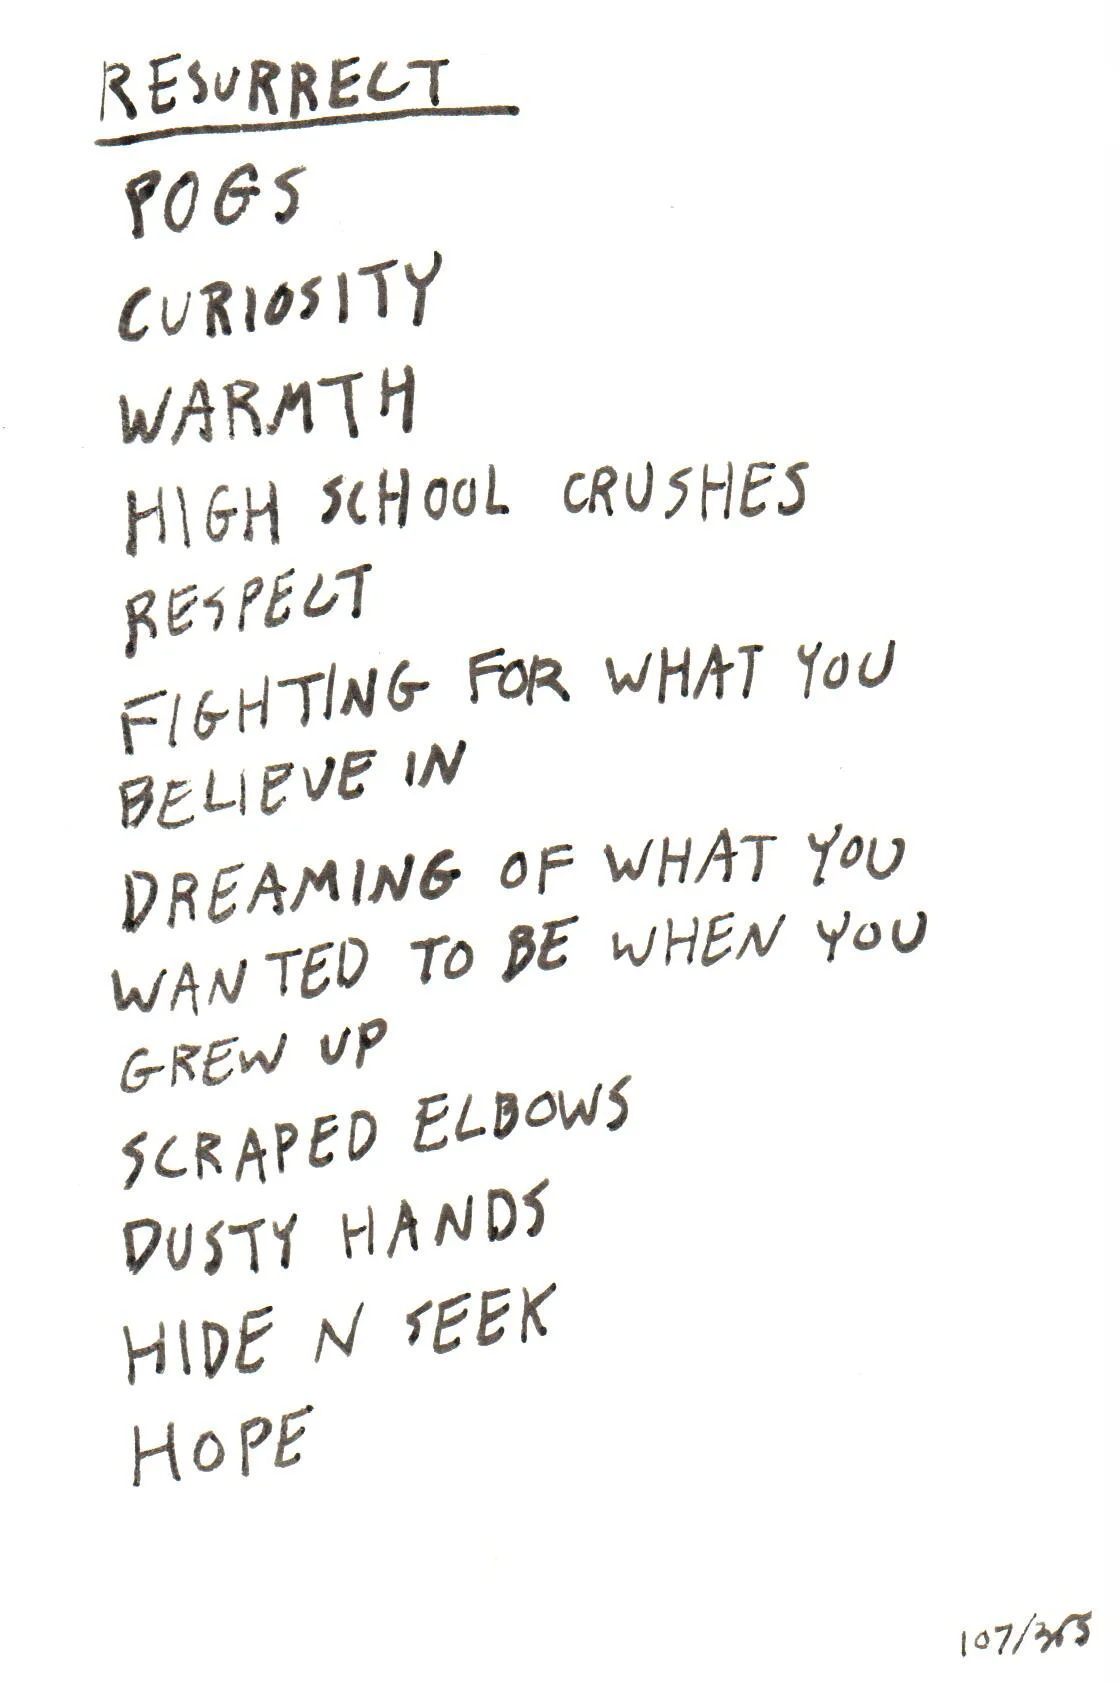 RESURRECT
POGS
CURIOSITY
WARMTH
HIGH SCHOOL CRUSHES
RESPECT
FIGHTING FOR WHAT YOU
BELIEVE IN
DREAMING OF WHAT YOU
WANTED TO BE WHEN YOU
GREW UP
SCRAPED ELBOWS
DUSTY HANDS
HIDE N SEEK
HOPE
107/365